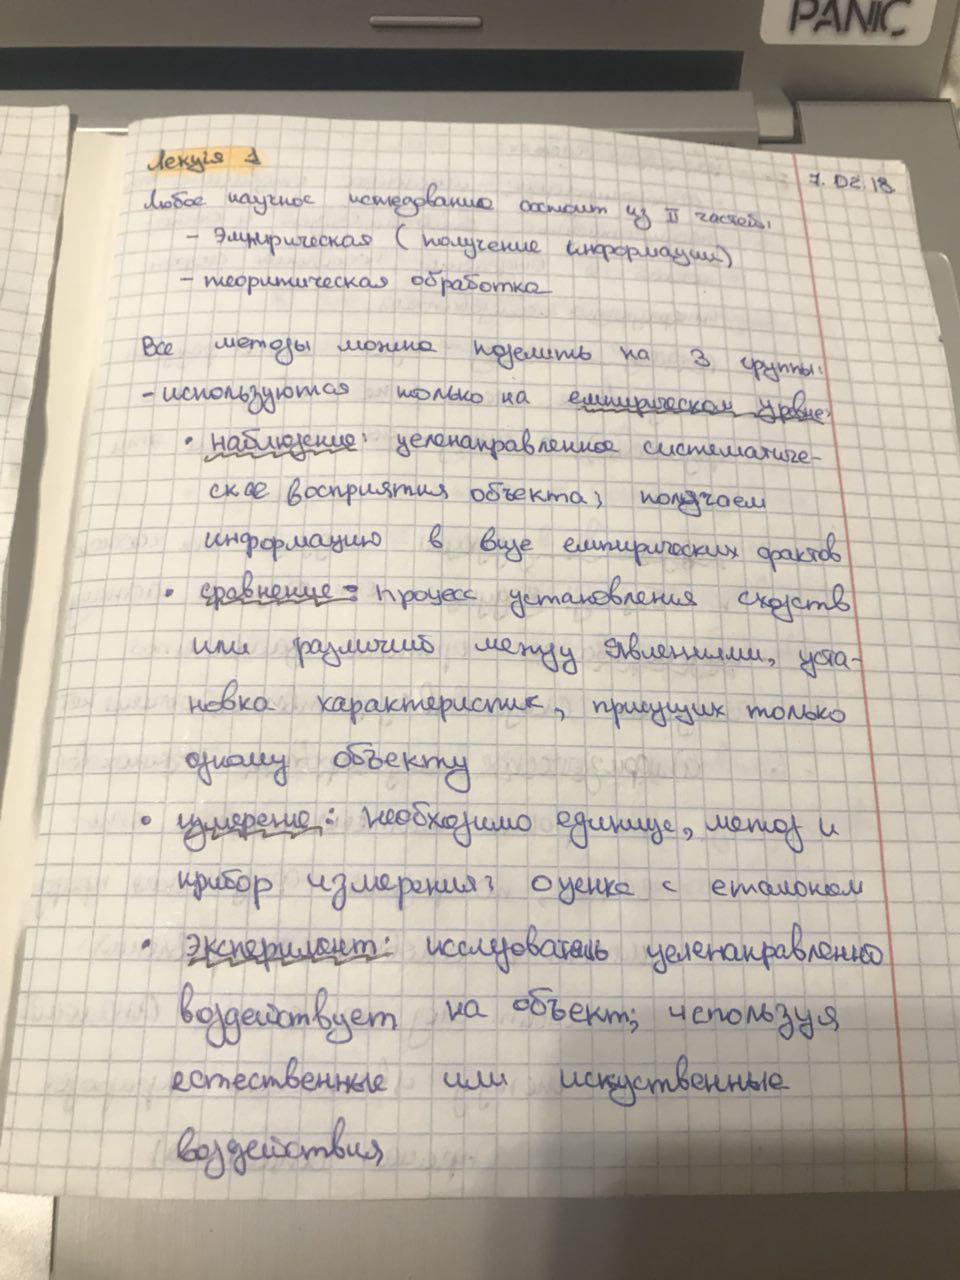 PANIC
Лекція 1
7.02.18
Любое научное исследование состоит из II частей:
- Эмпирическая (получение информации)
- теоритическая обработка
Все методы можно поделить на 3 группы:
- используются только на емпирическом уровне:
• наблюдение: целенаправленное систематиче-
ское восприятия объекта; получаем
информацию в виде емпирических фактов
• сравнение = процесс установления сходств
или различий между явлениями, уста-
новка характеристик, присущих только
одному объекту
• измерение: необходимо единице, метод и
прибор измерения; оценка с еталоном
• эксперимент: исследователь целенаправленно
воздействует на объект; используя
естественные или искуственные
воздействия